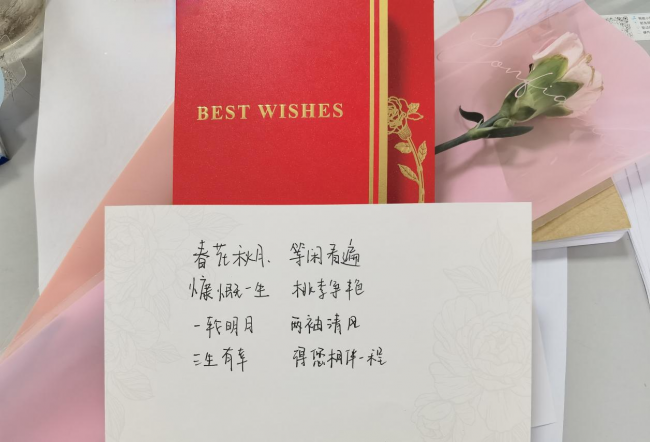 BEST WISHES
春花秋月、 等闲看遍
慷慨一生 桃李争艳
一轮明月 两袖清风
三生有幸 得您相伴一程